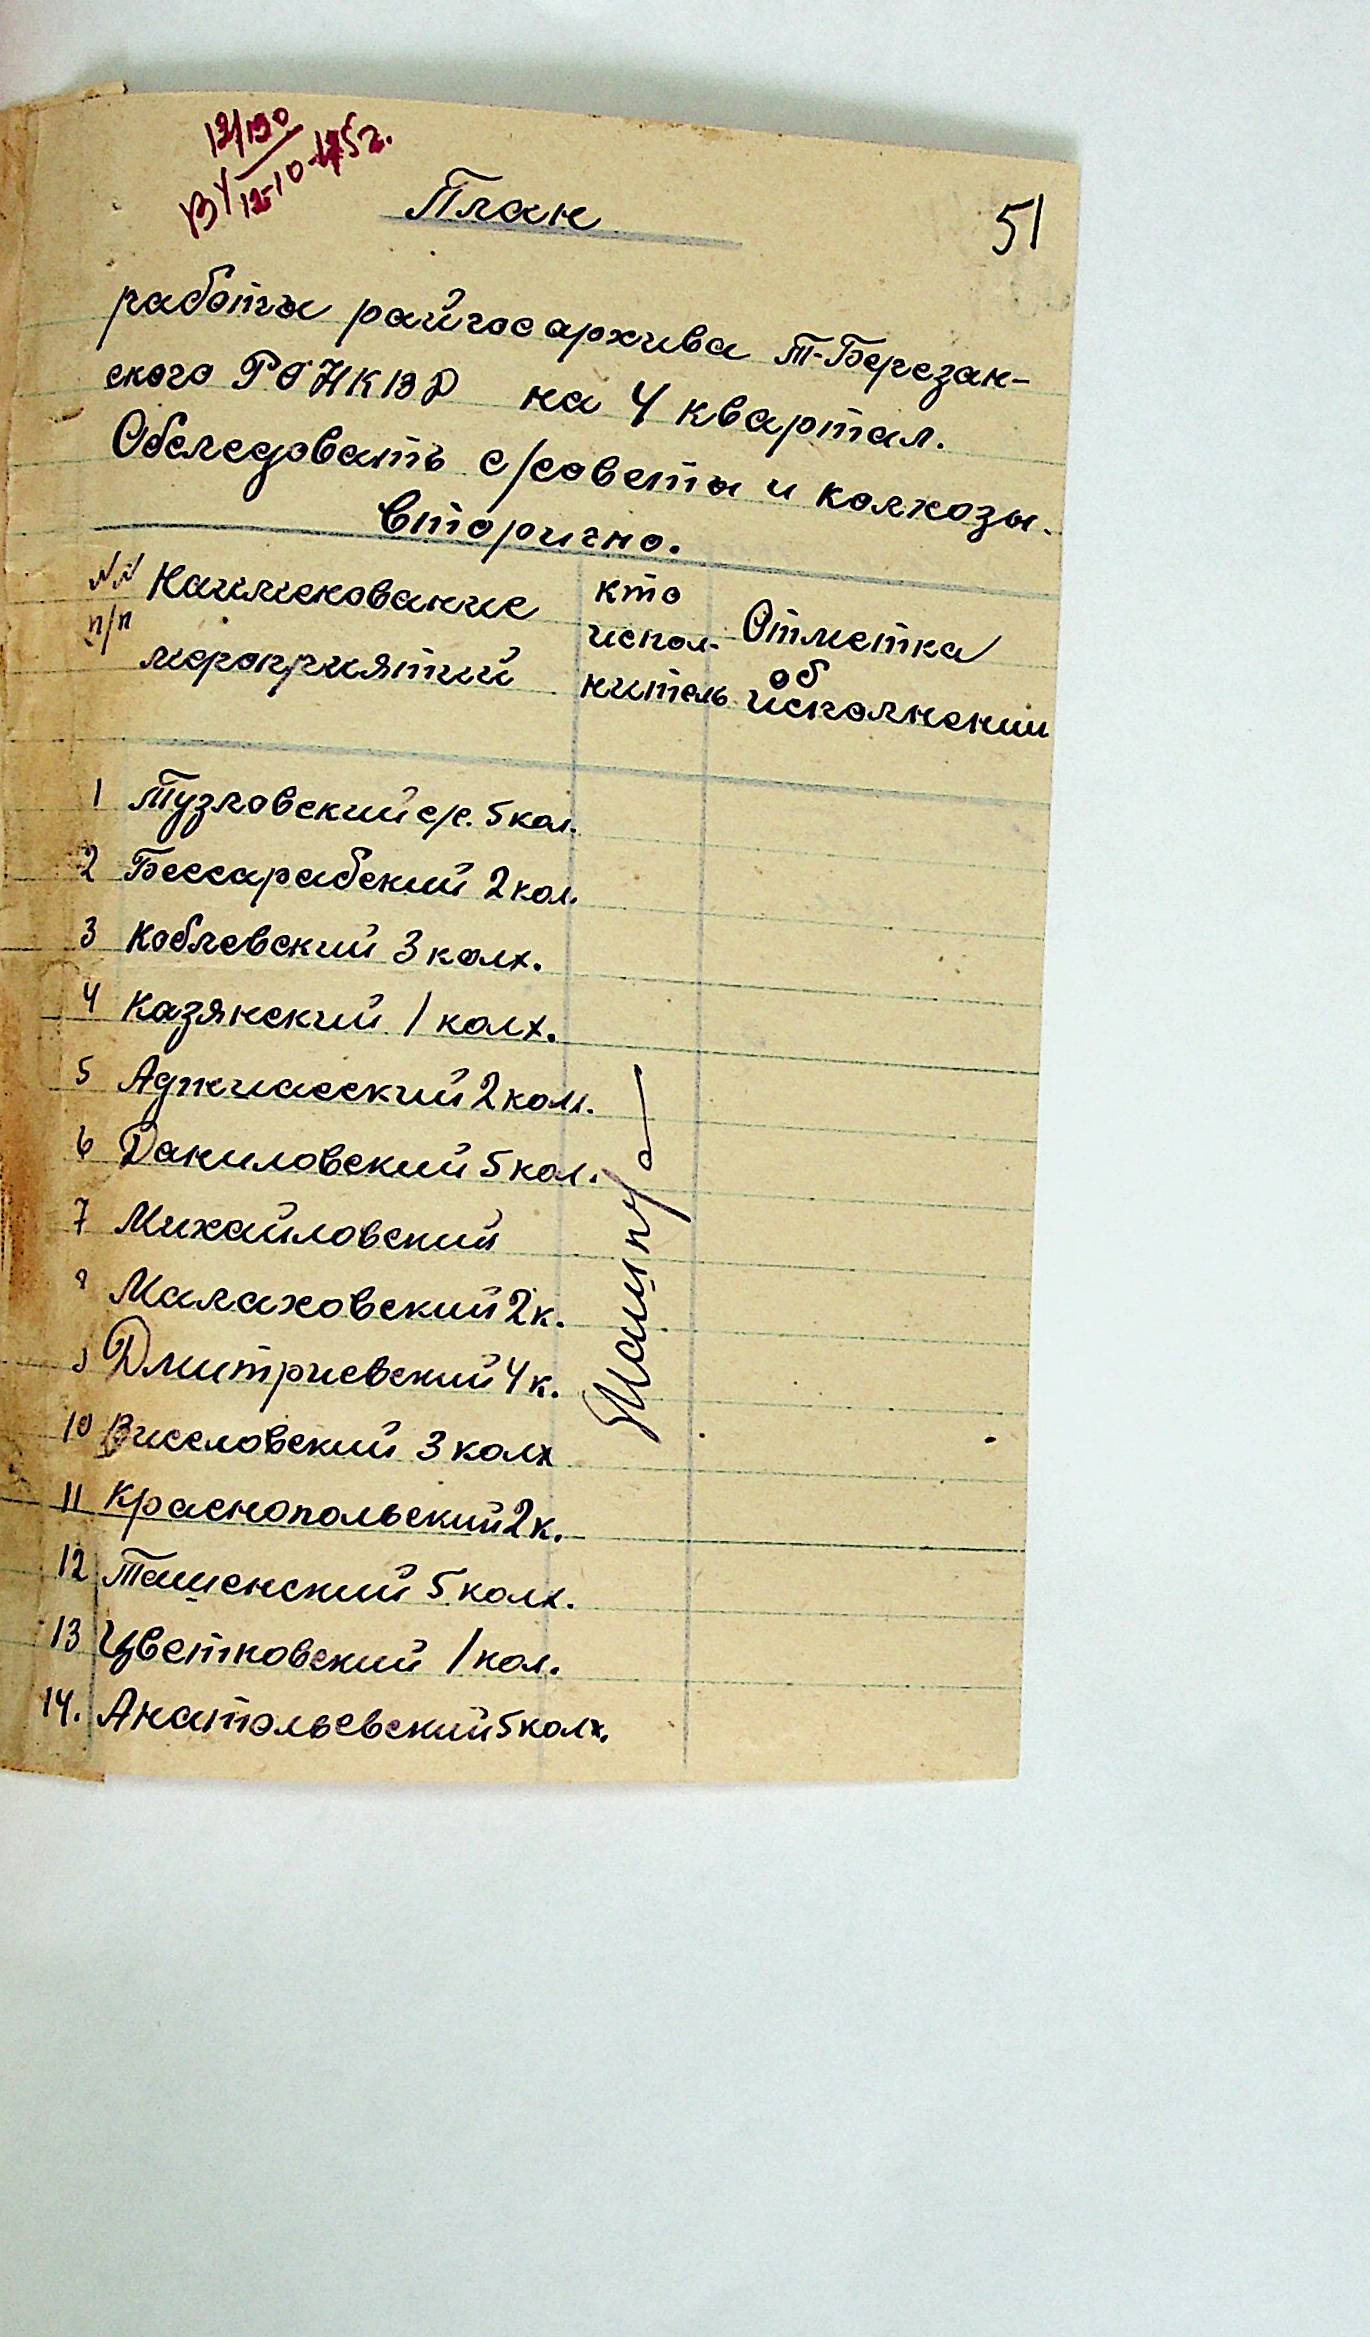 12/190
ВУ 12-10-45г.
План
51
работы райгосархива Т-Березан-
ского РО НКВД на 4 квартал.
Обследовать с/советы и колхозы
вторично.
№№ п/п
Наименование мероприятий
кто исполнитель
Отметка об исполнении
1 Тузловский с/с. 5 кол.
2 Бессарабский 2 кол.
3 Коблевский 3 колх.
4 Казянский 1 колх.
5 Аджиасский 2 кол.
6 Даниловский 5 кол.
7 Михайловский
8 Малаховский 2 к.
9 Дмитриевский 4 к.
10 Висловский 3 колх
11 Краснопольский 2 к.
12 Ташенский 5 колх.
13 Цветковский 1 кол.
14. Анатольевский 5 колх.